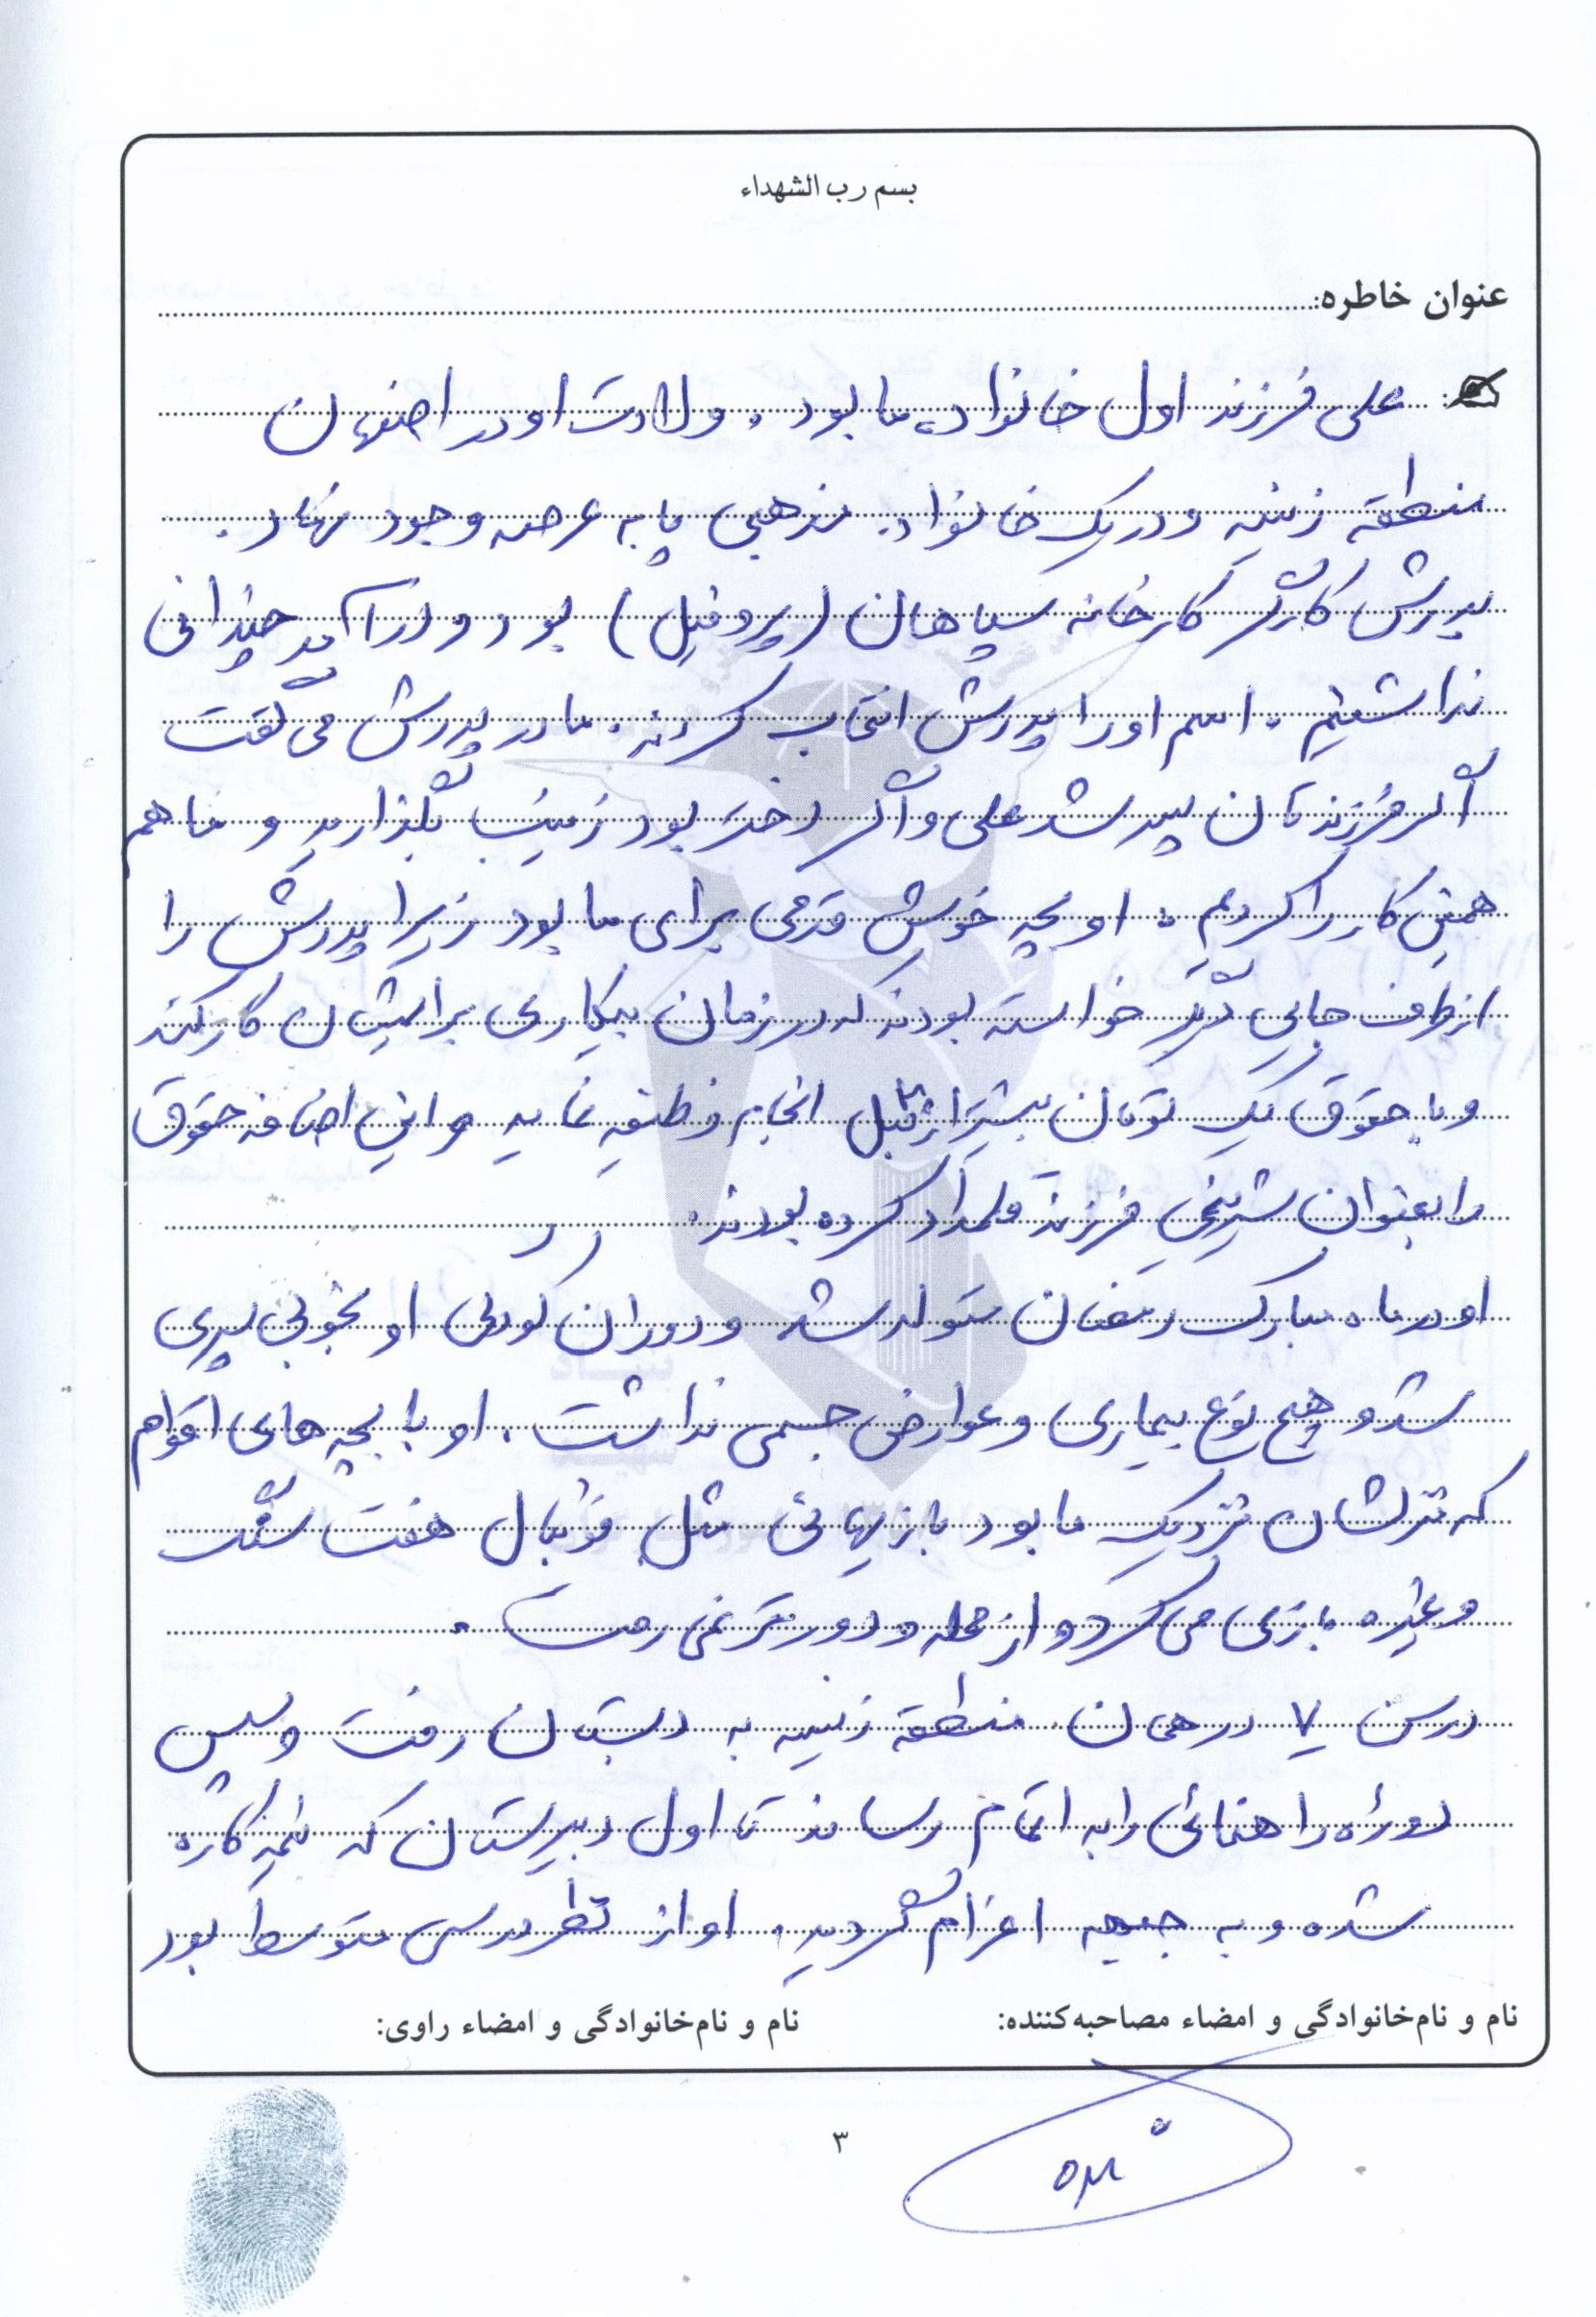 بسم رب الشهداء
عنوان خاطره:
علی فرزند اول خانواده ما بود. ولادت او در اصفهان
منطقه زینبیه و در یک خانواده مذهبی پا به عرصه وجود نهاد.
پدرش کارگر کارخانه سپاهان (پروفیل) بود و درآمد چندانی
نداشتیم. اسم او را پدرش انتخاب کردند. مادر پدرش می گفت
اگر فرزندتان پسر شد علی و اگر دختر بود زینب بگذارید و ما هم
همین کار را کردیم. او بچه خوش قدمی برای ما بود زیرا پدرش را
از طرف جایی دیگر خواسته بودند که در زمان بیکاری برایشان کار کند
و با حقوق یک تومان بیشتر از قبل انجام وظیفه نماید و این اضافه حقوق
را بعنوان شیرینی فرزند قلمداد کرده بودند.
او در ماه مبارک رمضان متولد شد و دوران کودکی او بخوبی سپری
شد و هیچ نوع بیماری و عوارض جسمی نداشت. او با بچه های اقوام
که منزلشان نزدیک ما بود بازیهائی مثل فوتبال هفت سنگ
و غیره بازی می کرد و از محله دورتر نمی رفت.
در سن ۷ در همان منطقه زینبیه به دبستان رفت و سپس
دوره راهنمائی را به اتمام رساند تا اول دبیرستان که نیمه کاره
شده و به جبهه اعزام گردید. او از نظر درسی متوسط بود
نام و نام‌خانوادگی و امضاء مصاحبه‌کننده:
نام و نام‌خانوادگی و امضاء راوی:
۳